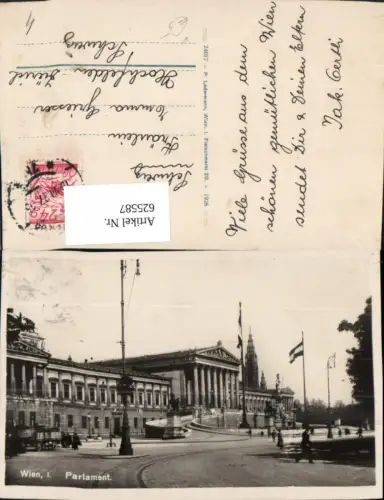 Viele Grüsse aus dem
schönen gemütlichen Wien
sendet Dir & Deinen Eltern
Jak. Oertli
24057 - P. Ledermann, Wien, I. Fleischmarkt 20. - 1926
Schweiz
Fräulein
Emma Griesser
Hochfelden-Zürich
Schweiz
24
Artikel Nr.
625587
Wien, I. Parlament.